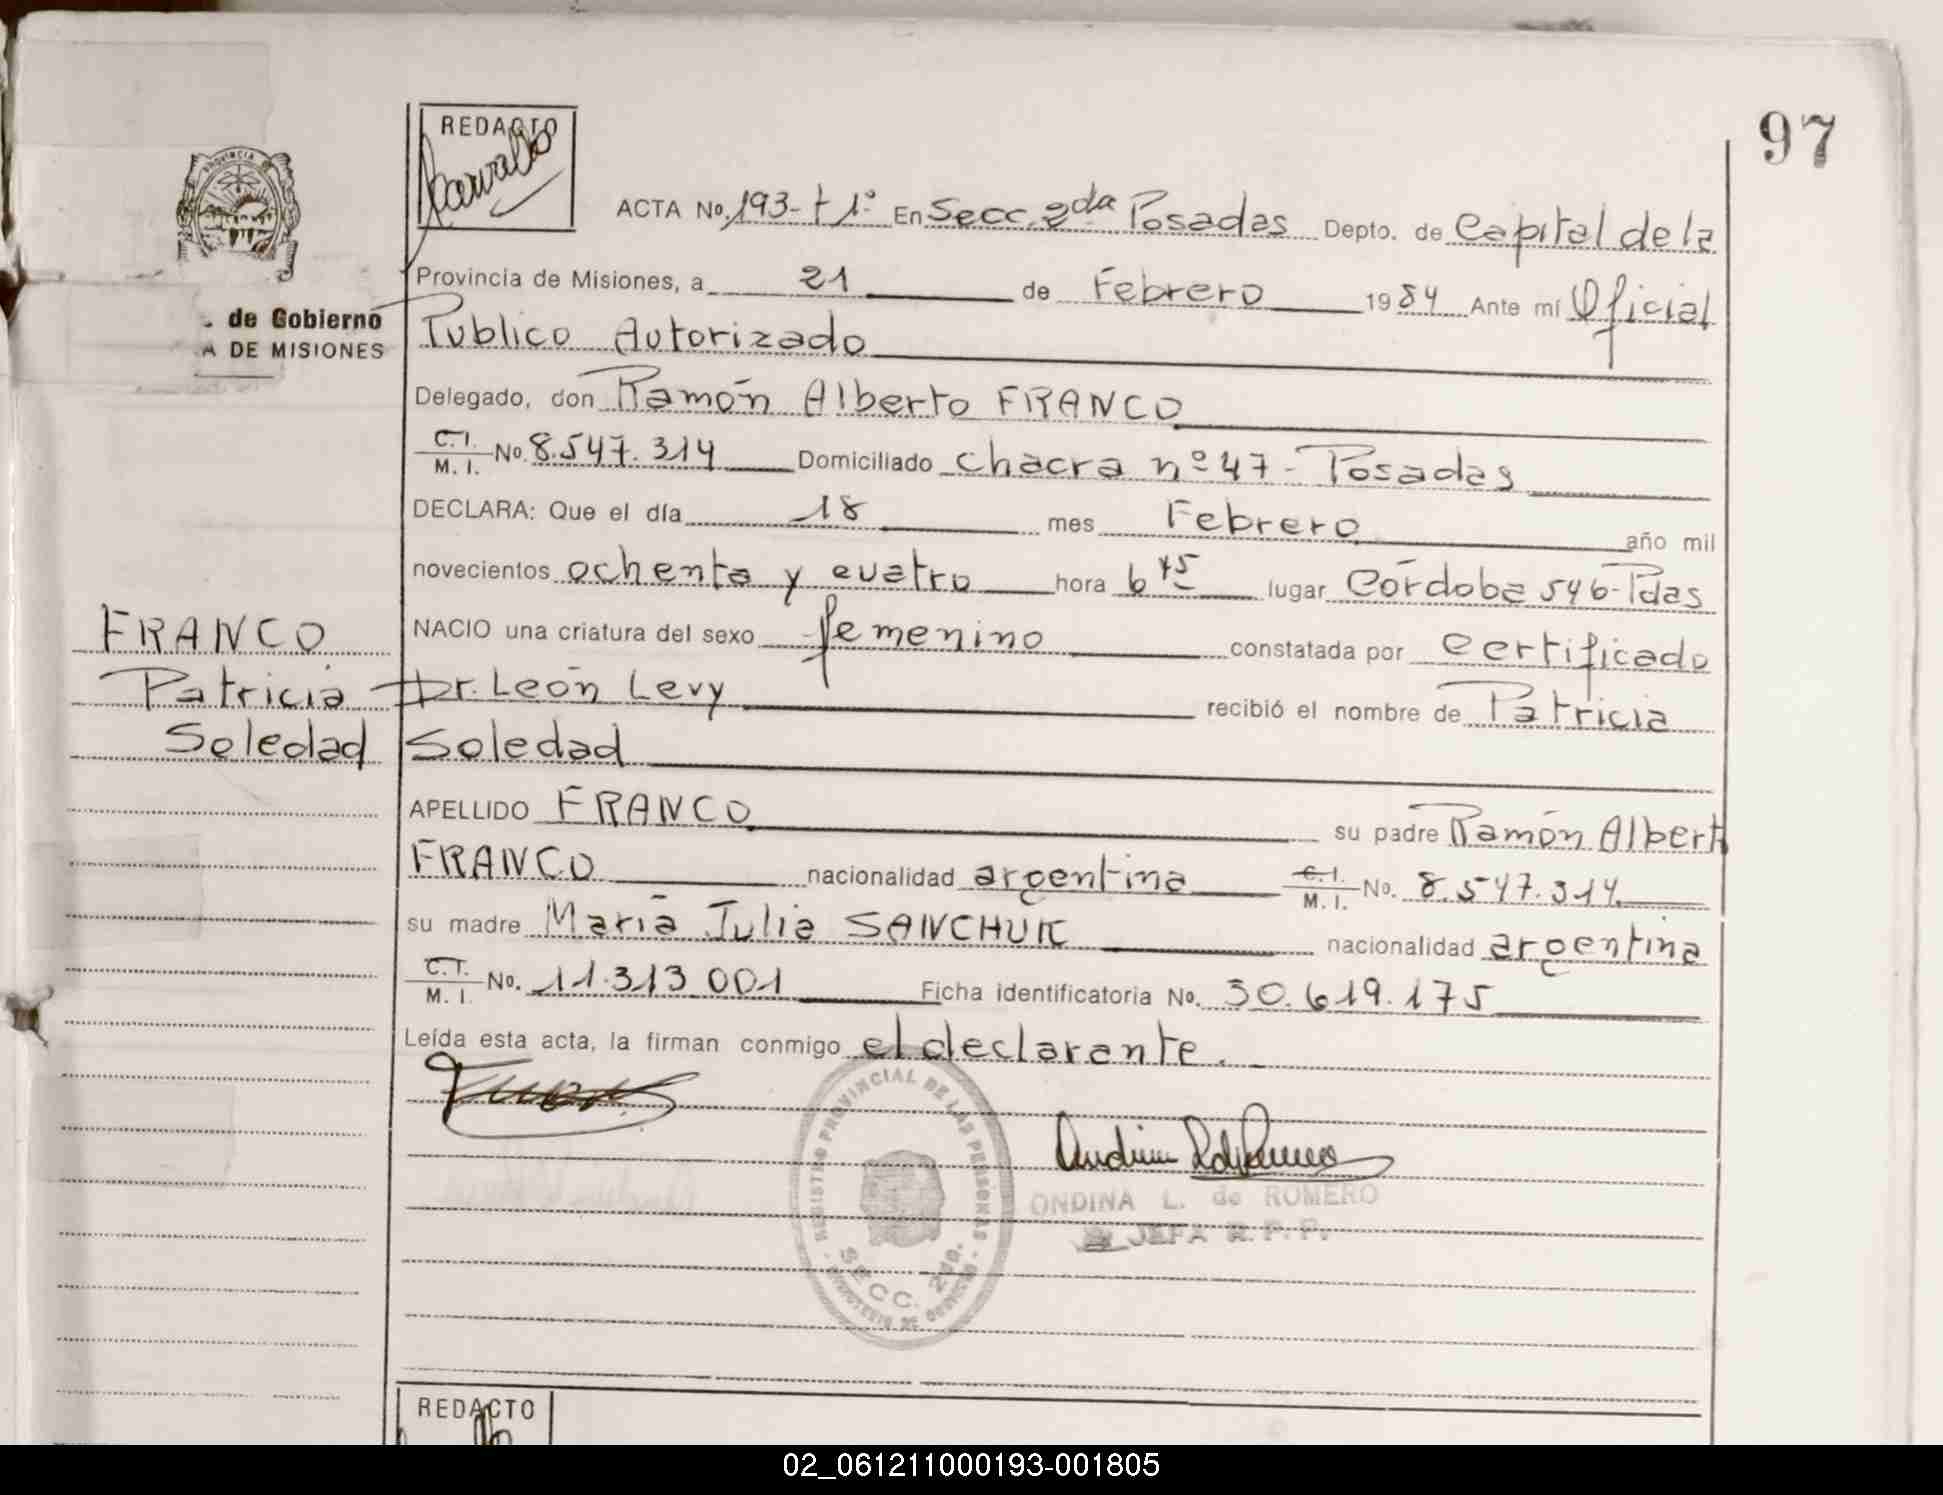 97
REDACTO
ACTA No. 193- t 1º En Secc. 2da Posadas Depto. de Capital de la
Provincia de Misiones, a 21 de Febrero 1984 Ante mí Oficial
de Gobierno
A DE MISIONES
Publico Autorizado
Delegado, don Ramón Alberto FRANCO
C.I. M. I. No. 8.547.314 Domiciliado chacra nº 47 - Posadas
DECLARA: Que el día 18 mes Febrero año mil
novecientos ochenta y cuatro hora 6 45 lugar Córdoba 546-Pdas
NACIO una criatura del sexo femenino constatada por certificado
FRANCO
Patricia
Soledad
Dr. León Levy recibió el nombre de Patricia
Soledad
APELLIDO FRANCO su padre Ramón Albert
FRANCO nacionalidad argentina C.I. M. I. No. 8.547.314
su madre María Julia SANCHUK nacionalidad argentina
C.I. M. I. No. 11.313 001 Ficha identificatoria No. 30.619.175
Leída esta acta, la firman conmigo el declarante.
REGISTRO PROVINCIAL DE LAS PERSONAS
SECC. 2da.
MINISTERIO DE GOBIERNO
ONDINA L. de ROMERO
JEFA R. P. P.
REDACTO
02_061211000193-001805